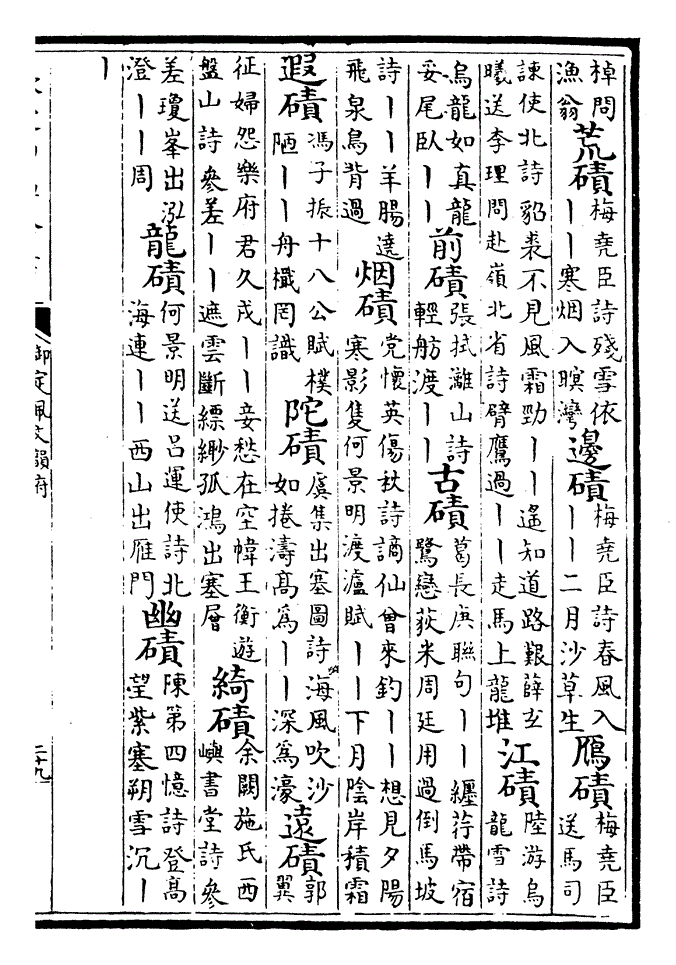 棹問漁翁 荒磧 梅堯臣詩殘雪依丨丨寒烟入暝灣 邊磧 梅堯臣詩春風入丨丨二月沙草生 鴈磧 梅堯臣送馬司
諫使北詩貂裘不見風霜勁丨丨遙知道路艱薛玄曦送李理問赴嶺北省詩臂鷹過丨丨走馬上龍堆 江磧 陸游烏龍雪詩
烏龍如真龍妥尾臥丨丨 前磧 張栻灕山詩輕舫渡丨丨 古磧 葛長庚聯句丨丨纏荇帶宿鷺戀荻米周廷用過倒馬坡
詩丨丨羊腸遶飛泉鳥背過 烟磧 党懷英傷秋詩謫仙曾來釣丨丨想見夕陽寒影隻何景明渡瀘賦丨丨下月陰岸積霜
遐磧 馮子振十八公賦樸陋丨丨舟檝罔識 陀磧 虞集出塞圖詩海風吹沙如捲濤高爲丨丨深爲濠 遠磧 郭翼
征婦怨樂府君久戍丨丨妾愁在空幃王衡遊盤山詩參差丨丨遮雲斷縹緲孤鴻出塞層 綺磧 余闕施氏西嶼書堂詩參
差瓊峯出泓澄丨丨周 龍磧 何景明送呂運使詩北海連丨丨西山出雁門 幽磧 陳第四憶詩登高望紫塞朔雪沉丨
丨
御定佩文韻府
二十九